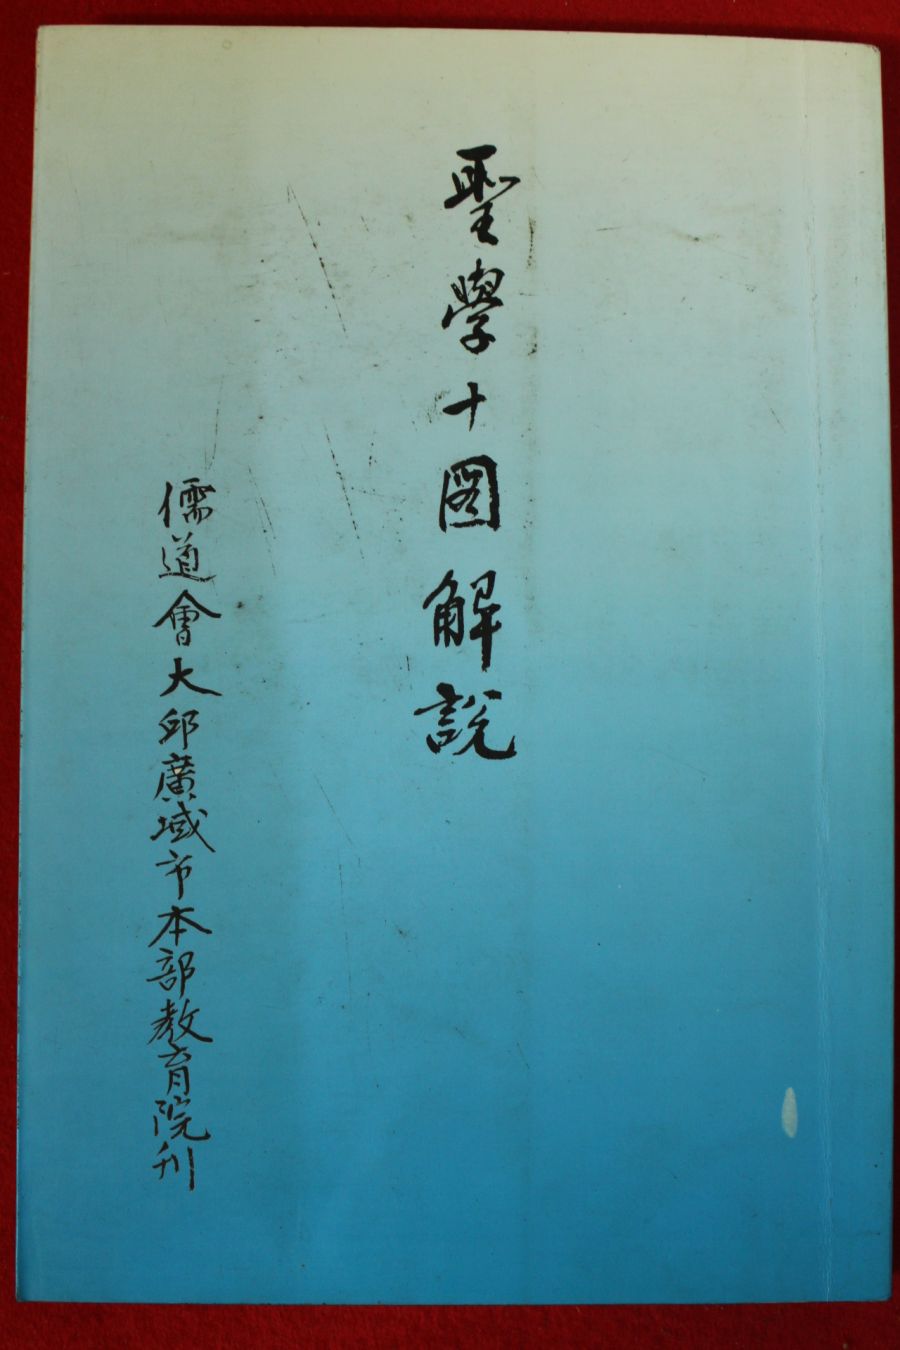 聖學十圖解說
儒道會大邱廣域市本部教育院刊